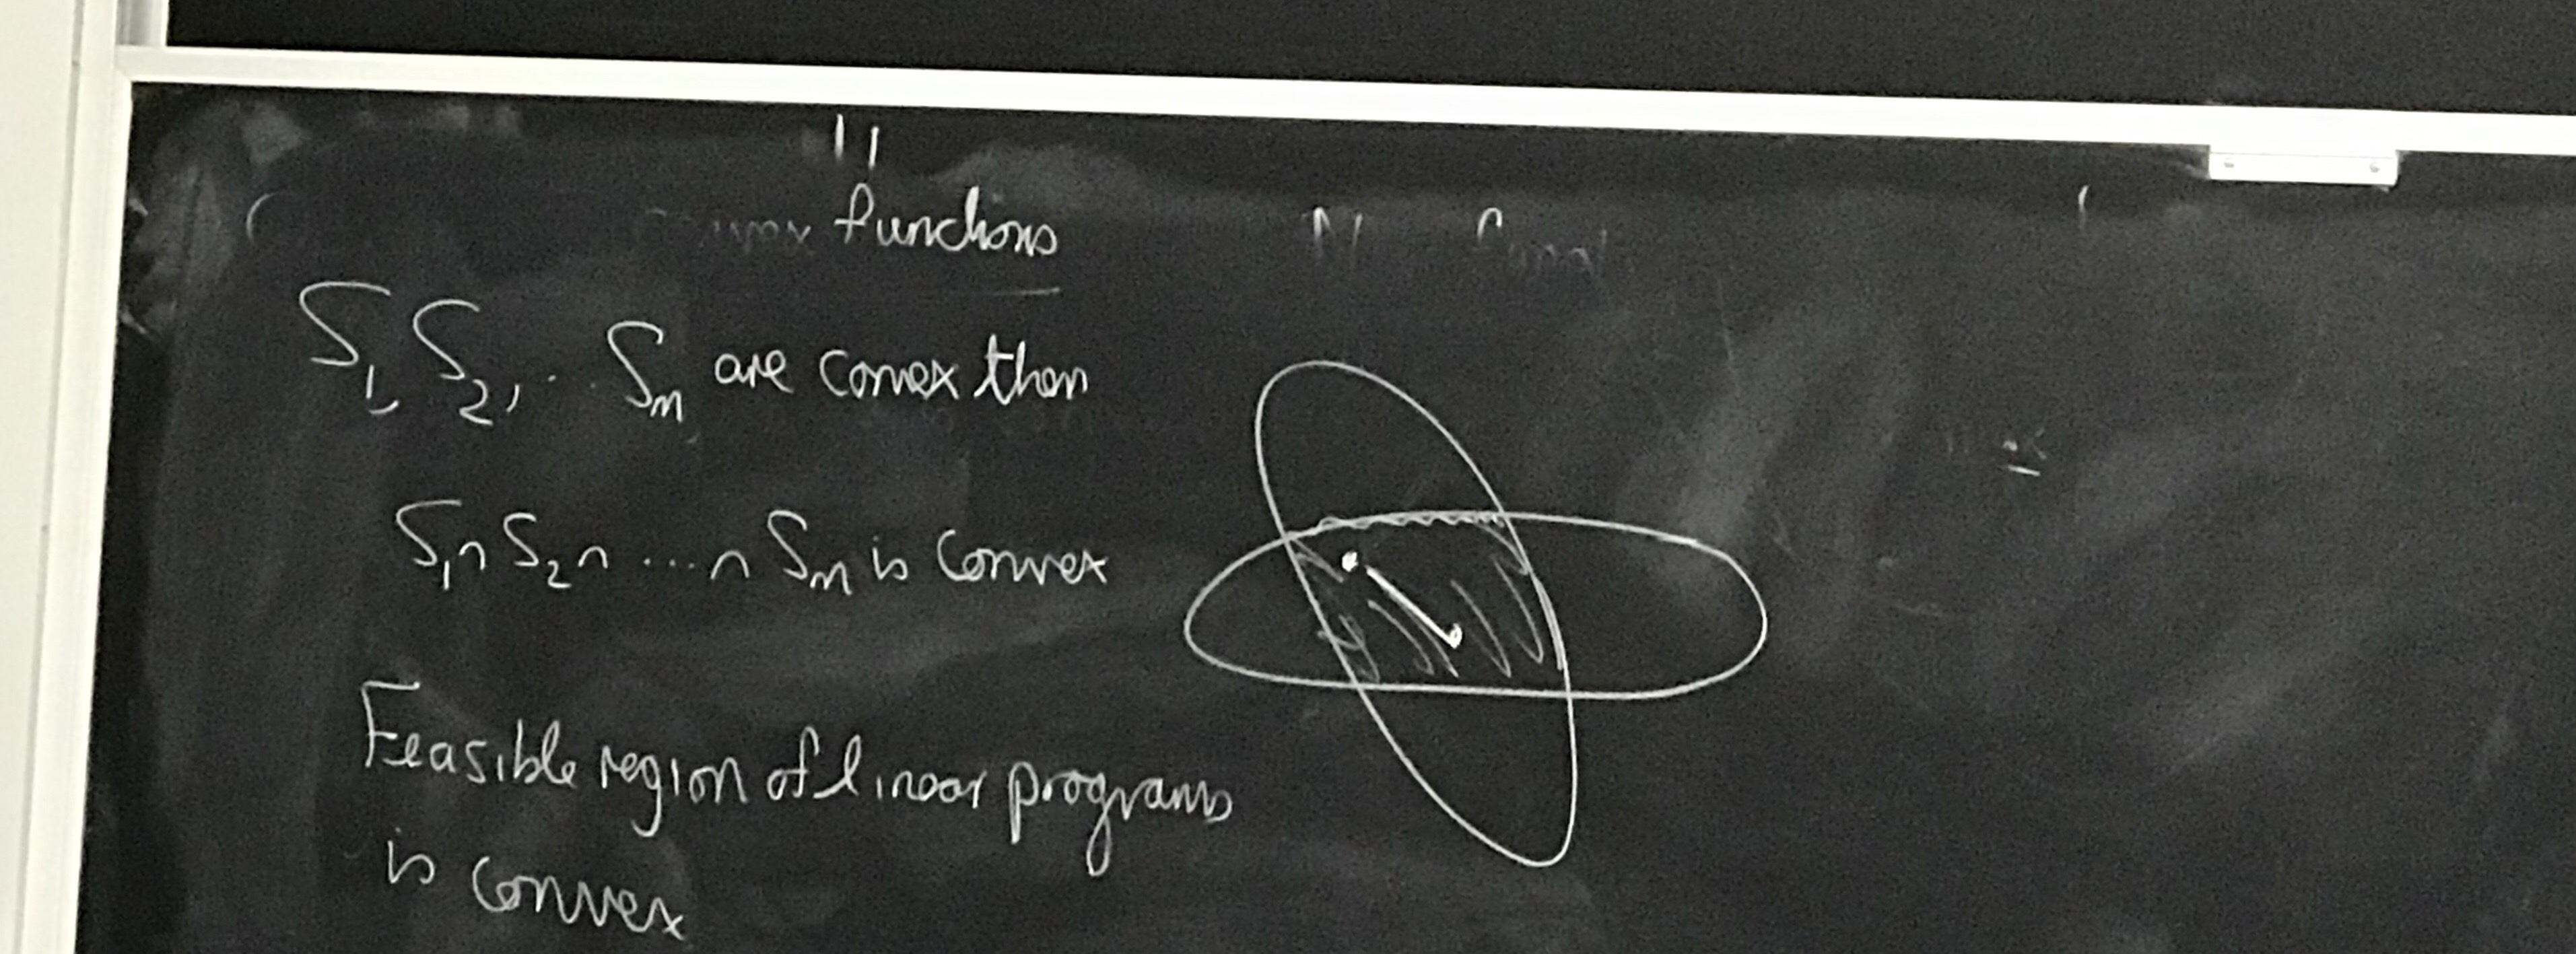 functions
S₁, S₂, .. Sₘ are convex then
S₁ ∩ S₂ ∩ ... ∩ Sₘ is convex
Feasible region of linear programs
is convex